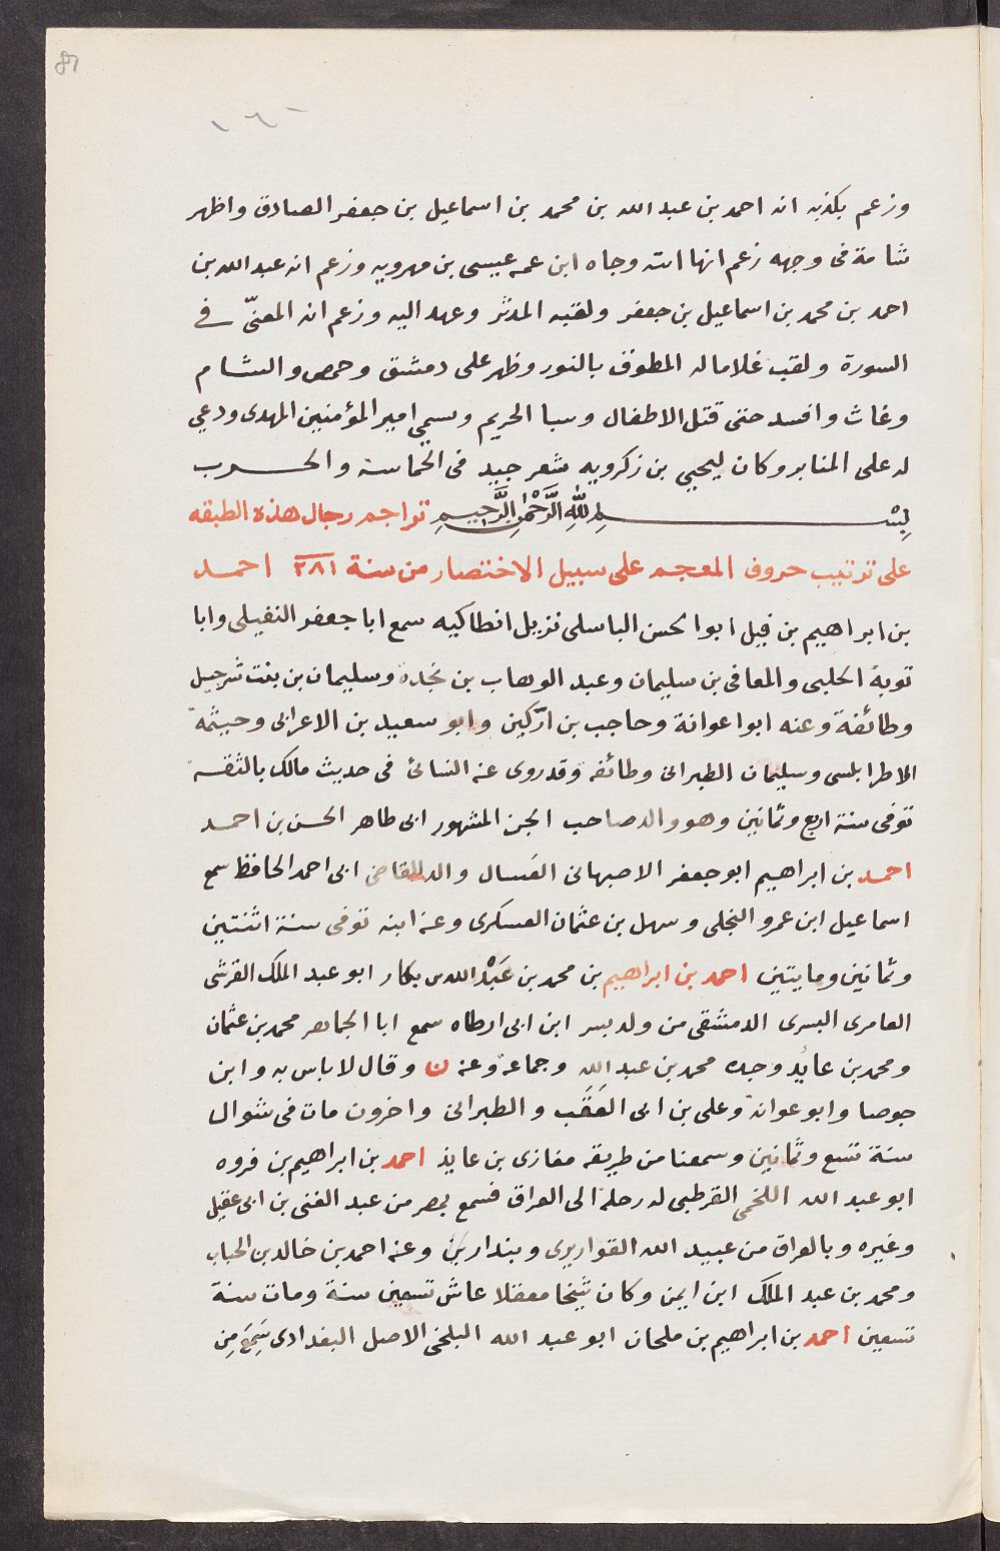 ١٦٠
وزعم بكذبه انه احمد بن عبد الله بن محمد بن اسماعيل بن جعفر الصادق واظهر
شامة فى وجهه زعم انها ايته وجاه ابن عمه عيسى بن مهرويه وزعم انه عبد الله بن
احمد بن محمد بن اسماعيل بن جعفر ولقبه المدثر وعهد اليه وزعم انه المعنّى فى
السورة ولقب غلاما له المطوق بالنور وظهر على دمشق وحمص والشام
وعاث وافسد حتى قتل الاطفال وسبا الحريم وسمى امير المؤمنين المهدى ودعى
له على المنابر وكان ليحيى بن زكرويه شعر جيد فى الحماسة والحرب
بِسْمِ اللهِ الرَّحْمٰنِ الرَّحِيمِ تراجم رجال هذه الطبقه
على ترتيب حروف المعجم على سبيل الاختصار من سنة ٢٨١ احمد
بن ابراهيم بن فيل ابوا لحسن البالسلى نزيل انطاكيه سمع ابا جعفر النفيلى وابا
توبة الحلبى والمعافى بن سليمان وعبد الوهاب بن نجدة وسليمان بن بنت شرحبيل
وطائفة وعنه ابوا عوانة وحاجب بن ارّكين وابو سعيد بن الاعرابى وخيثمة
الاطرابلسى وسليمان الطبرانى وطائفه وقد روى عنه النسائى فى حديث مالك بالثقة
توفى سنة اربع وثمانين وهو والد صاحب الجزء المشهور ابى طاهر الحسن بن احمد
احمد بن ابراهيم ابو جعفر الاصبهانى العَسال والد القاضى ابى احمد الحافظ سمع
اسماعيل ابن عمرو البجلى وسهل بن عثمان العسكرى وعنه ابنه توفى سنة اثنتين
وثمانين ومايتين احمد بن ابراهيم بن محمد بن عَبْد الله بن بكار ابو عبد الملك القرشى
العامرى البسرى الدمشقى من ولد بسر ابن ابى ارطاه سمع ابا الجماهر محمد بن عثمان
ومحمد بن عايد وجده محمد بن عبد الله وجماعة وعنه ن وقال لا باس به وابن
جوصا وابو عوانة وعلى بن ابى العَقَب والطبرانى واخرون مات فى شوال
سنة تسع وثمانين وسمعنا من طريقه مغازى بن عايذ احمد بن ابراهيم بن فروه
ابو عبد الله اللخمى القرطبى له رحلة الى العراق فسمع بمصر من عبد الغنى بن ابى عقيل
وغيره وبالعراق من عبيد الله القواريرى وبندارين وعنه احمد بن خالد بن الحباب
ومحمد بن عبد الملك ابن ايمن وكان شيخا مغفلا عاش تسعين سنة ومات سنة
تسعين احمد بن ابراهيم بن ملحان ابو عبد الله البلخى الاصل البغدادى سَمِعَ مِن